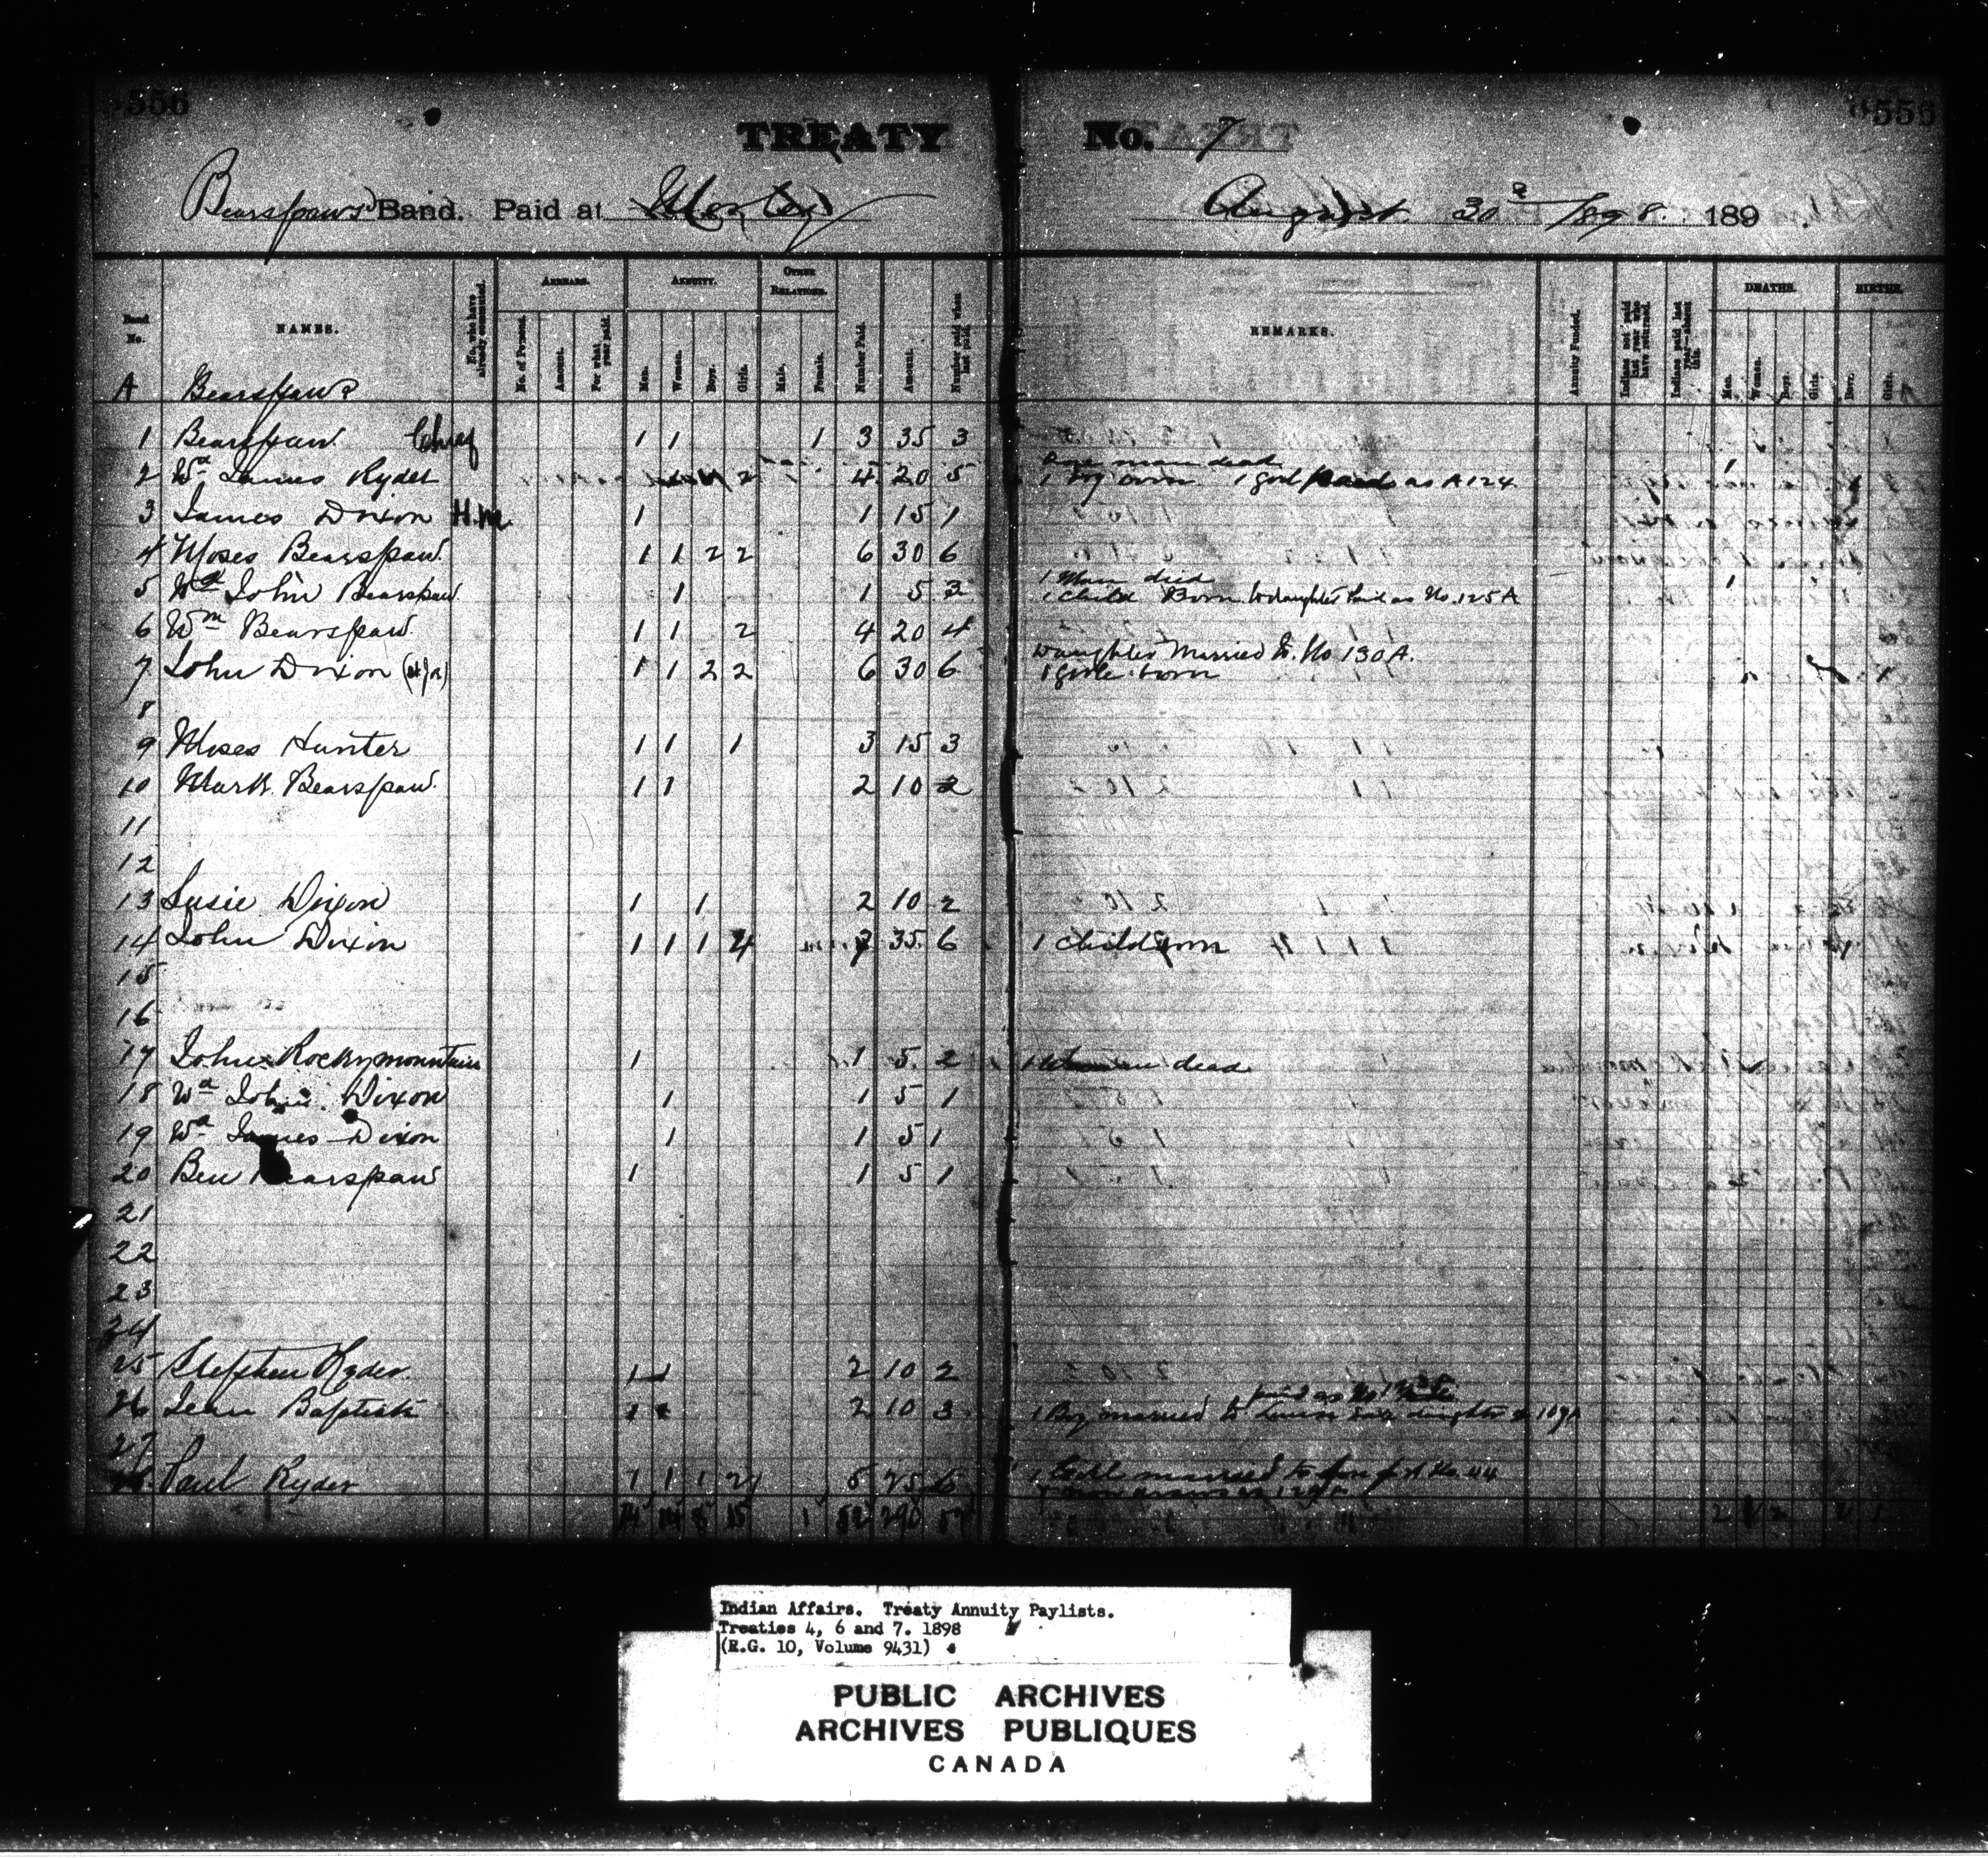 556 556
TREATY No. 7
Bearspaws Band. Paid at Morley August 30th 1898. 189
Band No. NAMES. No. who have already commuted. ARREARS. No. of Persons. Amount. For what year paid. ANNUITY. Men. Women. Boys. Girls. OTHER RELATIONS. Male. Female. Number Paid. Amount. Number paid when last paid. REMARKS. Annuity Funded. Indians not paid last year who have returned. Indians paid last year—absent this. DEATHS. Men. Women. Boys. Girls. BIRTHS. Boys. Girls.
A Bearspaws
1 Bearspaw Chief 1 1 1 3 35 3
2 Wd James Ryder 2 4 20 5 One man dead
1 boy born 1 girl Paid as A 124
3 James Dixon H.M. 1 1 15 1
4 Moses Bearspaw 1 1 2 2 6 30 6
5 Wd John Bearspaw 1 1 5 3 1 Man died
1 child Born. daughter Paid as No. 125 A
6 Wm Bearspaw 1 1 2 4 20 4
7 John Dixon 1 1 2 2 6 30 6 daughter Married to No 130 A.
1 girl born
8
9 Moses Hunter 1 1 1 3 15 3
10 Mark Bearspaw 1 1 2 10 2
11
12
13 Susie Dixon 1 1 2 10 2
14 John Dixon 1 1 1 4 7 35 6 1 child born
15
16
17 John Rockymountain 1 1 5 2 1 Woman dead
18 Wd John Dixon 1 1 5 1
19 Wd James Dixon 1 1 5 1
20 Ben Bearspaw 1 1 5 1
21
22
23
24
25 Stephen Ryder 1 1 2 10 2
26 Jean Baptiste 1 1 2 10 3 1 Boy married to daughter
27
28 Paul Ryder 1 1 1 2 5 25 6 1 Girl married to son of No. 44
14 14 8 15 1 52 290
Indian Affairs. Treaty Annuity Paylists.
Treaties 4, 6 and 7. 1898
(R.G. 10, Volume 9431)
PUBLIC ARCHIVES
ARCHIVES PUBLIQUES
CANADA